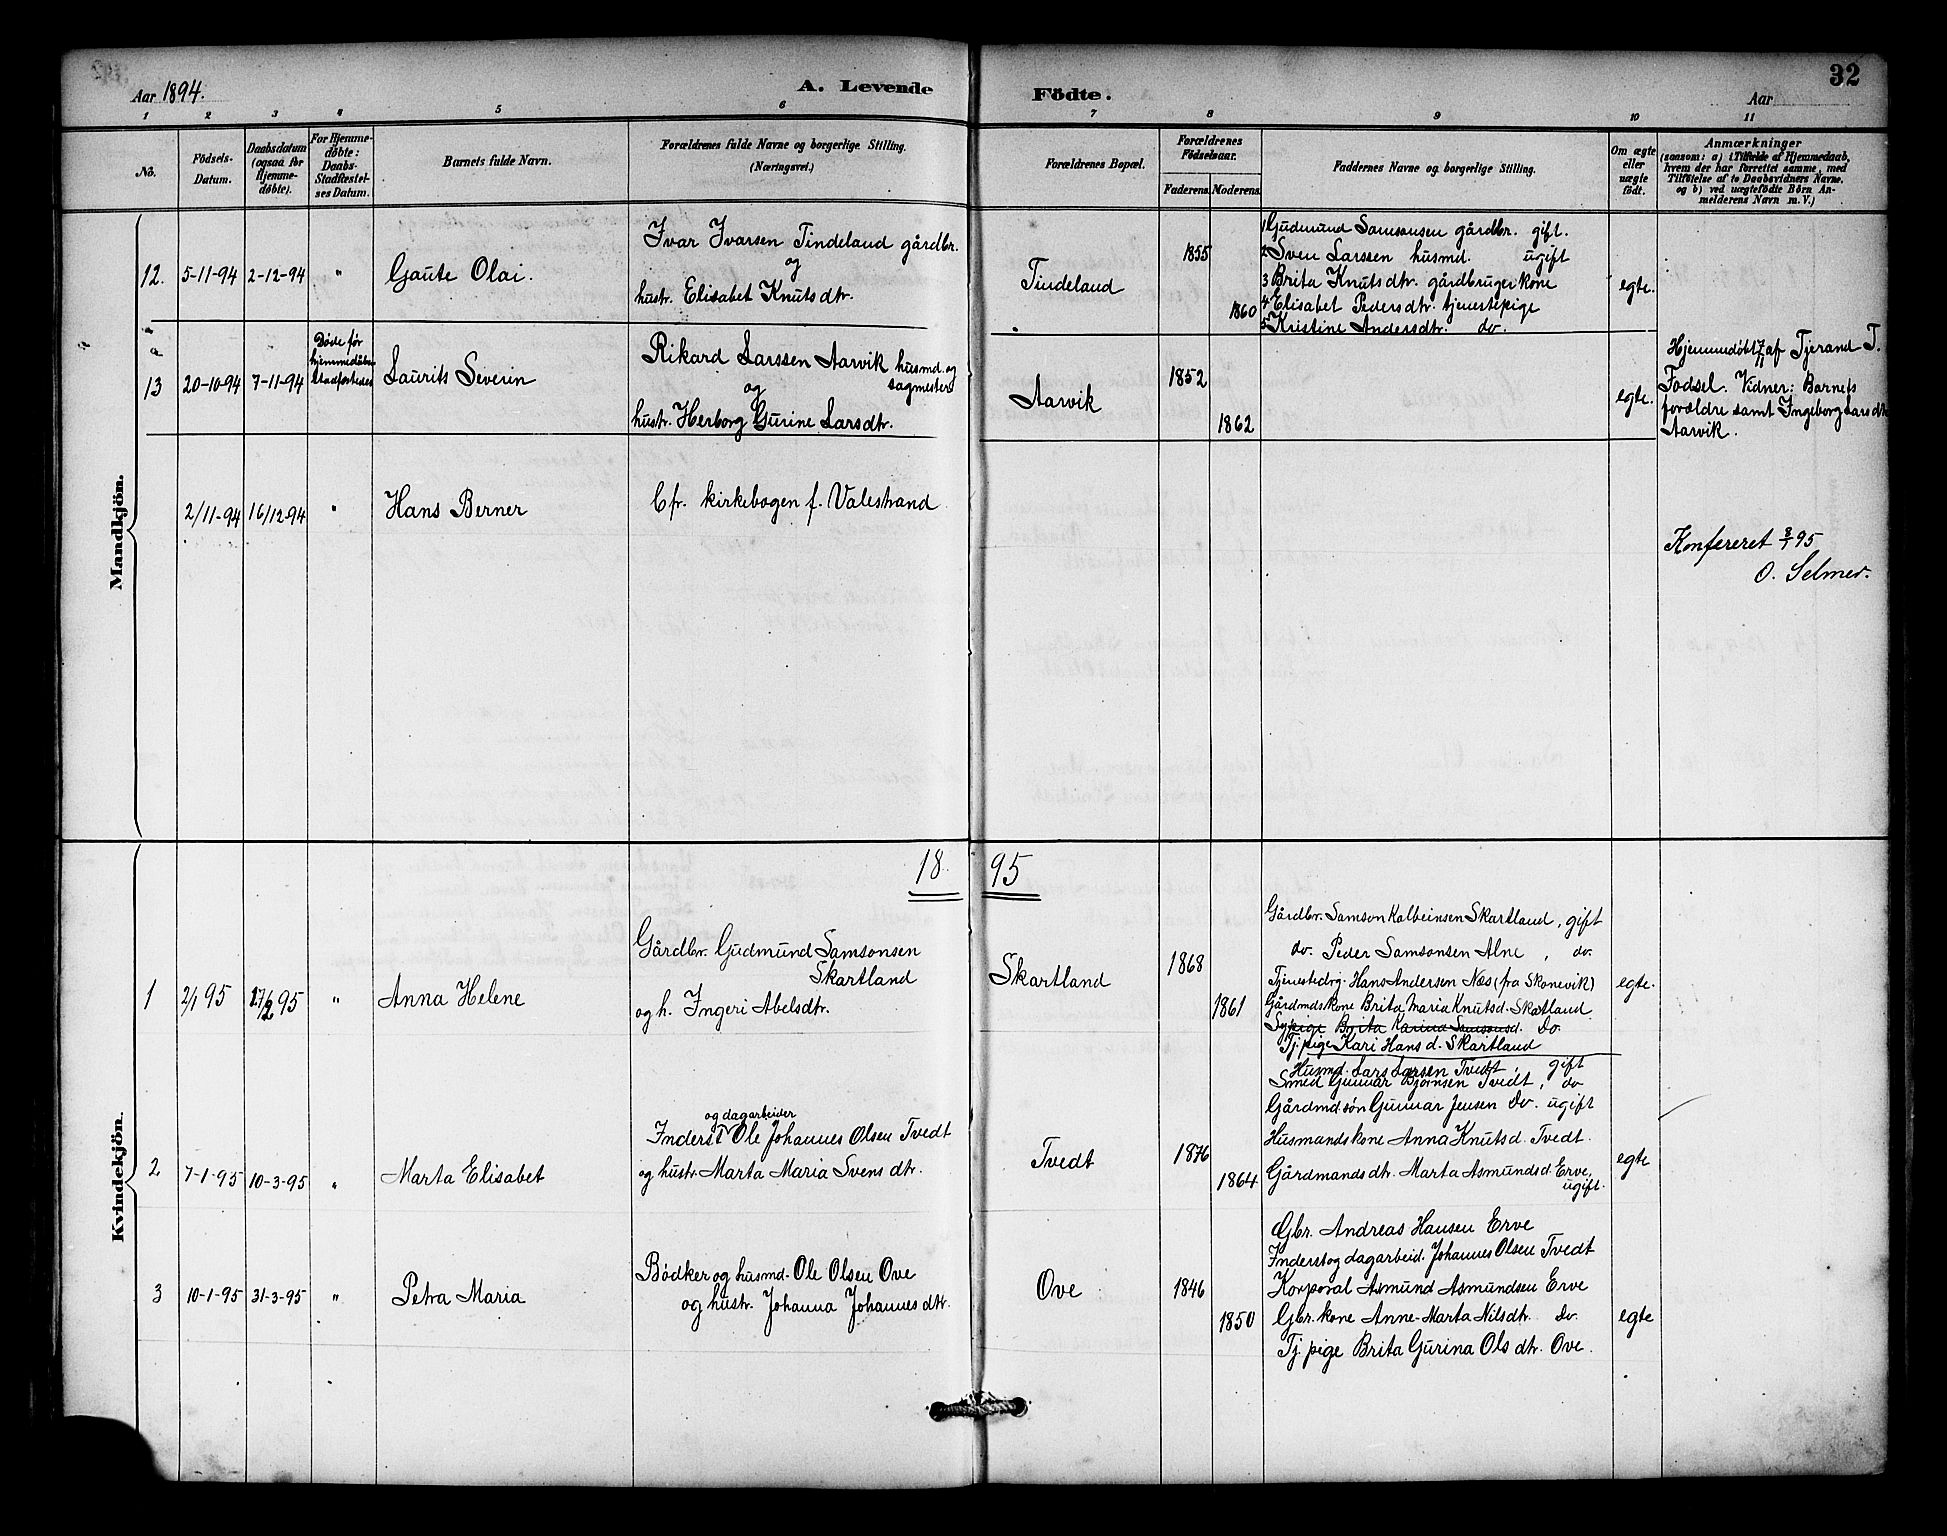 32
Aar 1894.
A. Levende Födte.
Aar
1 2 3 4 5 6 7 8 9 10 11
No.
Födsels-Datum.
Daabsdatum (ogsaa for Hjemme-döbte).
For Hjemme-döbte: Daabs-Stadfæstel-ses Datum.
Barnets fulde Navn.
Forældrenes fulde Navne og borgerlige Stilling. (Næringsvei.)
Forældrenes Bopæl.
Forældrenes Födselsaar.
Faderens. Moderens.
Faddernes Navne og borgerlige Stilling.
Om ægte eller uægte födt.
Anmærkninger
(saasom: a) i Tilfælde af Hjemmedaab,
hvem der har forrettet samme, med
Tilföielse af to Daabsvidners Navne,
og b) ved uægtefödte Börn An-
melderens Navn m. V.)
Mandkjön.
12. 5-11-94 2-12-94 " Gaute Olai.
Ivar Ivarsen Tindeland gårdbr.
og
hustr. Elisabet Knutsdtr.
Tindeland
1855
1860
1 Gudmund Samsonsen gårdbr. gift.
2 Sven Larssen husmd. ugift
3 Brita Knutsdtr. gårdbrugerkone
4 Elisabet Pedersdtr. tjenestepige
5 Kristine Andersdtr. do.
egte.
13 20-10-94 7-11-94
Døde før
hjemmedåben
stadfæstedes
Laurits Severin
Rikard Larssen Aarvik husmd. og
og sagmester
hustr. Herborg Gurine Larsdtr.
Aarvik
1852
1862
egte.
Hjemmedøbt 7/11 af Tjerand T.
Fødsel. Vidner: Barnets
forældre samt Ingeborg Larsdtr
Aarvik.
2/11-94 16/12-94 " Hans Berner
Cfr. kirkebogen f. Valestrand
Konfereret 8/1 95
O. Selmer.
Kvindekjön.
18 95
1 2/1 95 17/2 95 " Anna Helene
Gårdbr. Gudmund Samsonsen
Skartland
og h. Ingeri Abelsdtr.
Skartland
1868
1861
Gårdbr. Samson Kolbeinsen Skartland, gift
do. Peder Samsonsen Alne, do.
Tjenestedrg. Hans Andersen Næs (fra Skonevik)
Gårdmdskone Brita Maria Knutsd. Skartland
Sypige Brita Karina Samsonsd. Do.
Tj.pige Kari Hansd. Skartland
egte.
2 7-1-95 10-3-95 " Marta Elisabet
og dagarbeider
Inderst Ole Johannes Olsen Tvedt
og hustr. Marta Maria Svensdtr.
Tvedt
1876
1864
Husmd. Lars Larsen Tvedt, gift
Smed Gunnar Bjørnsen Tvedt, do
Gårdmd.søn Gunnar Jensen Do. ugift
Husmandskone Anna Knutsd. Tvedt.
Gårdmandsdtr. Marta Asmundsd. Erve,
ugift.
egte
3 10-1-95 31-3-95 " Petra Maria
Bødker og husmd. Ole Olsen Ove
og hustr. Johanna Johannesdtr.
Ove
1846
1850
Gbr. Andreas Hansen Erve
Inderst og dagarbeid. Johannes Olsen Tvedt
Korporal Asmund Asmundsen Erve
Gbr.kone Anne-Marta Nilsdtr. do.
Tj.pige Brita Gurina Olsdtr. Ove.
egte